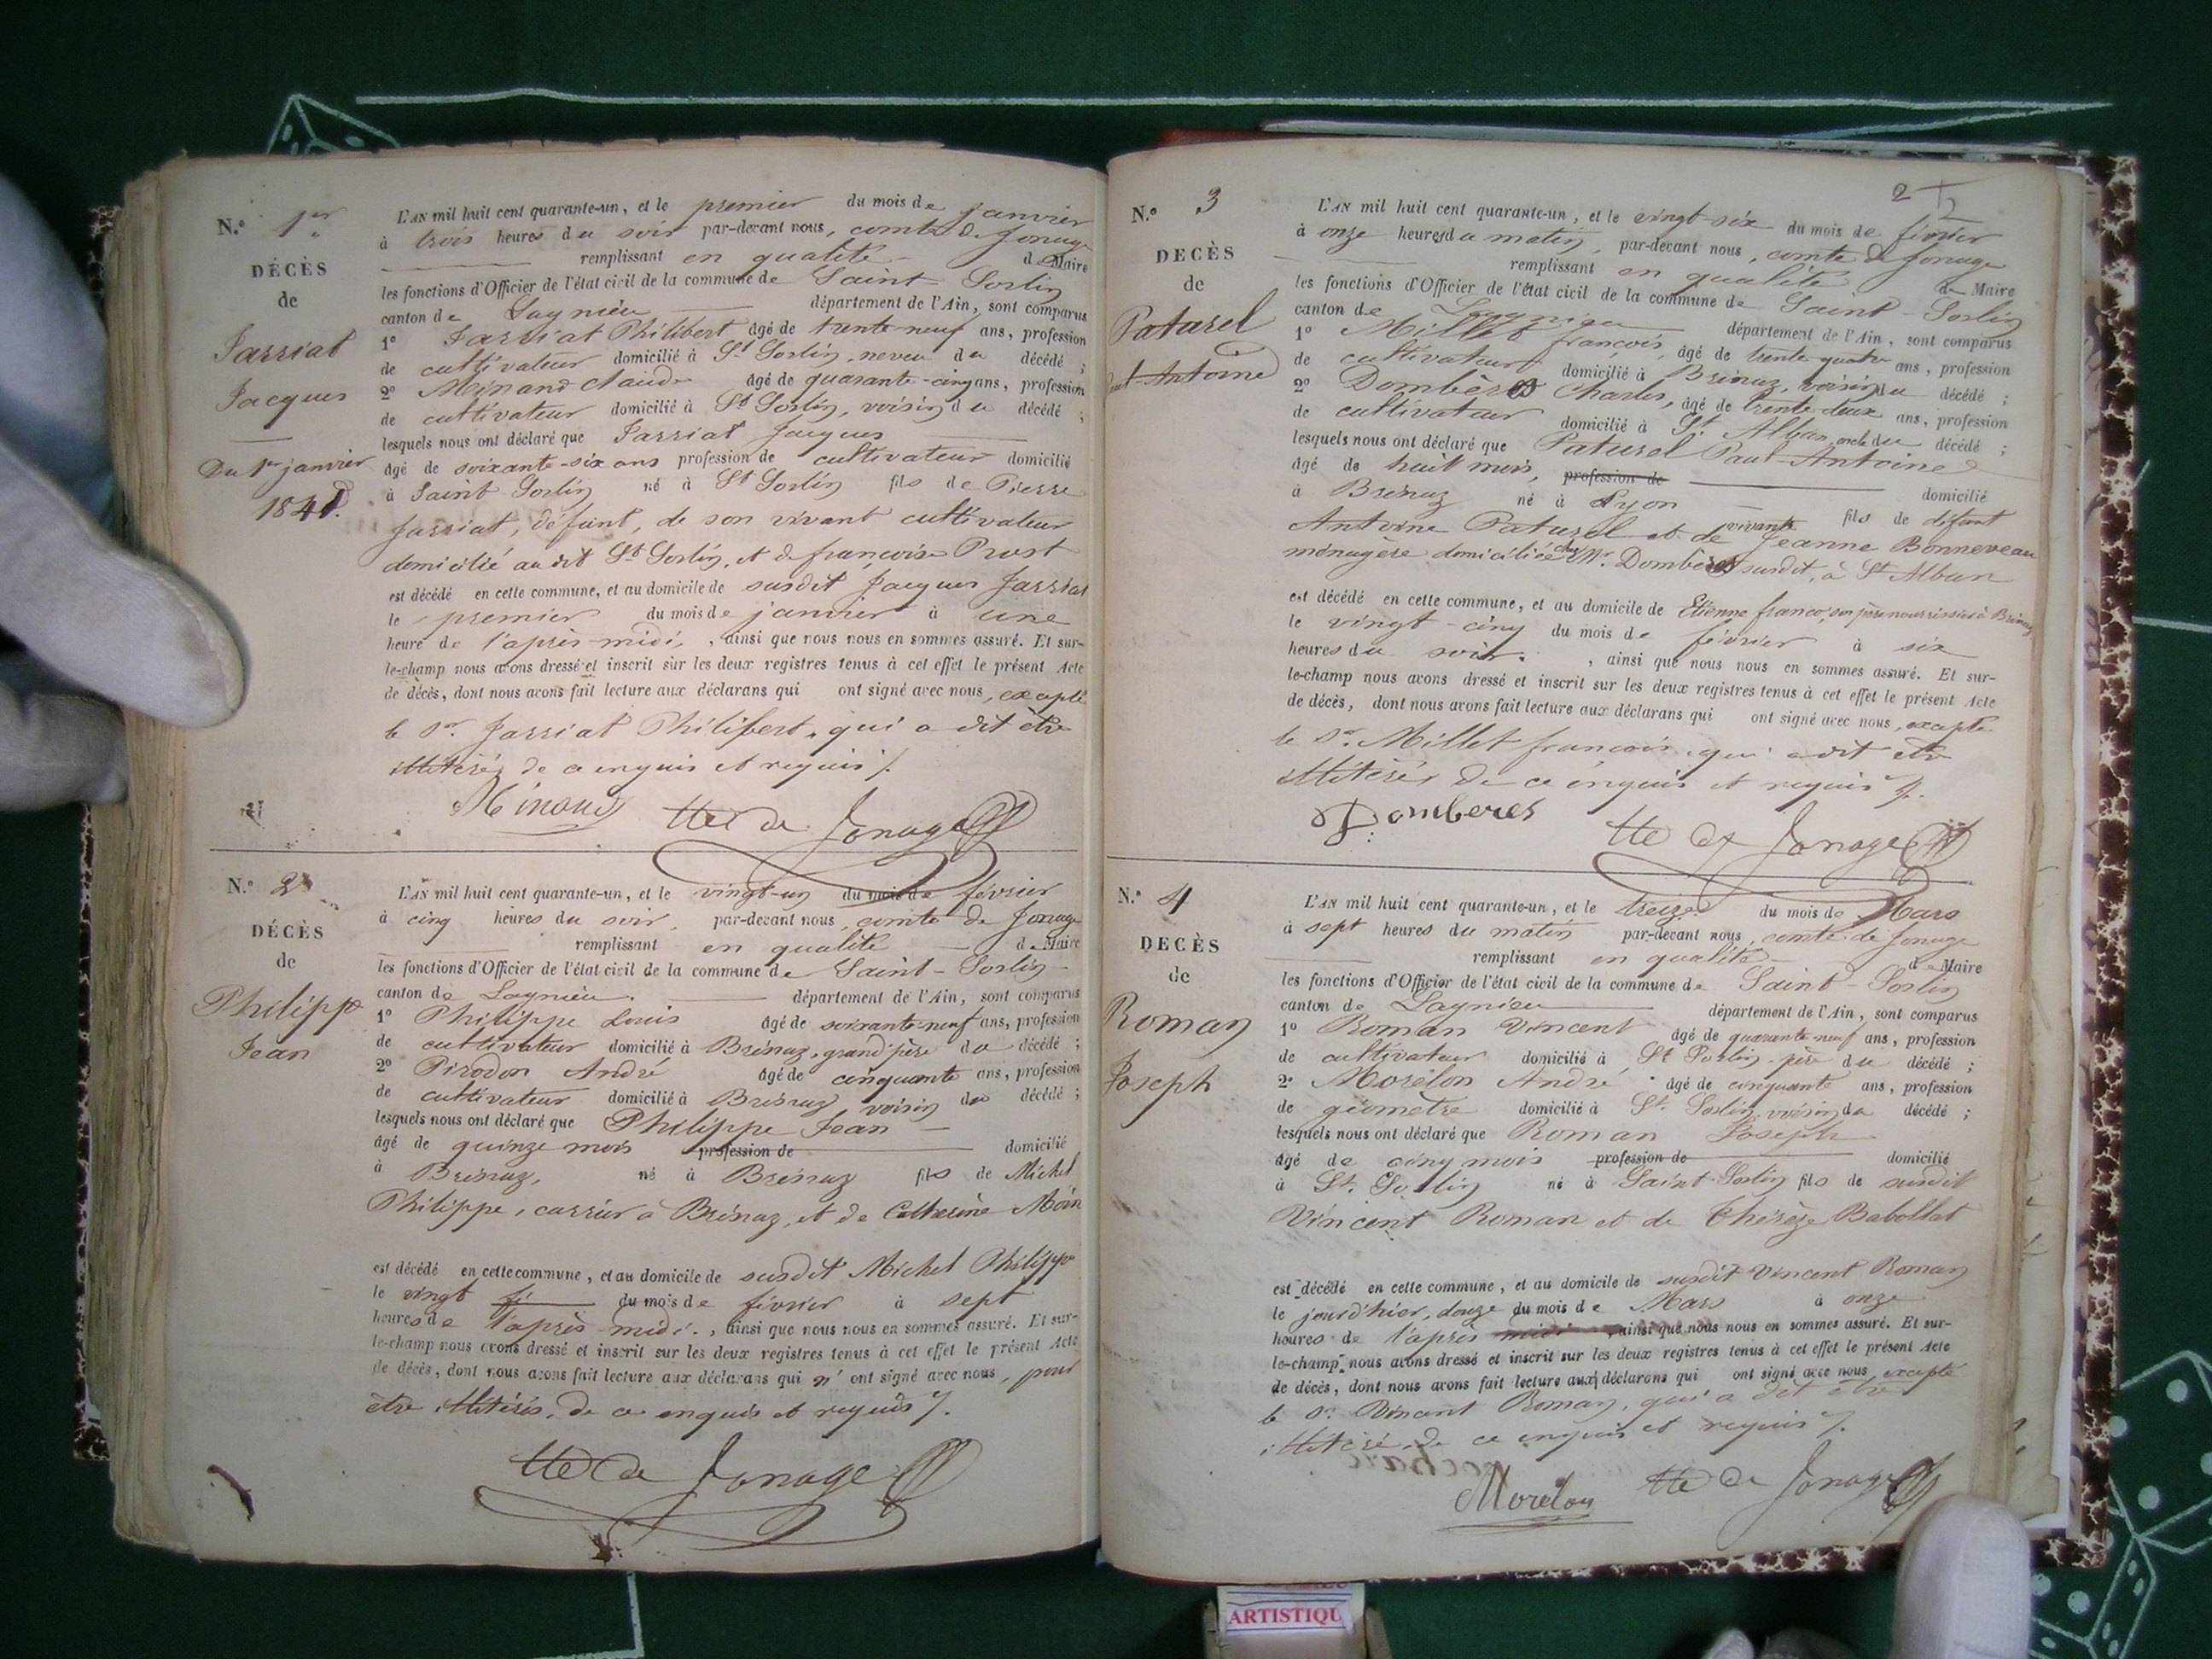 N.º 1er
DÉCÈS
de
Jarriat
Jacques
Du 1er janvier
1841.
L'AN mil huit cent quarante-un, et le premier du mois de janvier
à trois heures du soir par-devant nous, comte de Jonage
remplissant en qualité de Maire
les fonctions d'Officier de l'état civil de la commune de Saint-Sorlin
canton de Lagnieu département de l'Ain, sont comparus
1º Jarriat Philibert âgé de trente-neuf ans, profession
de cultivateur domicilié à St Sorlin, neveu du décédé ;
2º Minand Claude âgé de quarante-cinq ans, profession
de cultivateur domicilié à St Sorlin, voisin du décédé ;
lesquels nous ont déclaré que Jarriat Jacques
âgé de soixante-six ans profession de cultivateur domicilié
à Saint Sorlin né à St Sorlin fils de Pierre
Jarriat, défunt, de son vivant cultivateur
domicilié au dit St Sorlin, et de françoise Prost
est décédé en cette commune, et au domicile de susdit Jacques Jarriat
le premier du mois de janvier à une
heure de l'après-midi, , ainsi que nous nous en sommes assuré. Et sur-
le-champ nous avons dressé et inscrit sur les deux registres tenus à cet effet le présent Acte
de décès, dont nous avons fait lecture aux déclarans qui ont signé avec nous, excepté
le Sr. Jarriat Philibert, qui a dit être
illitéré, de ce enquis et requis /.
Minand Cte de Jonage
N.º 2
DÉCÈS
de
Philippe
Jean
L'AN mil huit cent quarante-un, et le vingt-un du mois de février
à cinq heures du soir, par-devant nous, comte de Jonage
remplissant en qualité de Maire
les fonctions d'Officier de l'état civil de la commune de Saint-Sorlin
canton de Lagnieu. département de l'Ain, sont comparus
1º Philippe Louis âgé de soixante-neuf ans, profession
de cultivateur domicilié à Brénaz, grand'père du décédé ;
2º Pirodon André âgé de cinquante ans, profession
de cultivateur domicilié à Brénaz voisin du décédé ;
lesquels nous ont déclaré que Philippe Jean
âgé de quinze mois profession de domicilié
à Brénaz, né à Brénaz fils de Michel
Philippe, carrier à Brénaz, et de Catherine
est décédé en cette commune, et au domicile de susdit Michel Philippe
le vingt du mois de février à sept
heures de l'après-midi. , ainsi que nous nous en sommes assuré. Et sur-
le-champ nous avons dressé et inscrit sur les deux registres tenus à cet effet le présent Acte
de décès, dont nous avons fait lecture aux déclarans qui n' ont signé avec nous, pour
être illitérés, de ce enquis et requis /.
Cte de Jonage
2
N.º 3
DECÈS
de
Paturel
Paul-Antoine
L'AN mil huit cent quarante-un, et le vingt-six du mois de février
à onze heures du matin, par-devant nous, comte de Jonage
remplissant en qualité de Maire
les fonctions d'Officier de l'état civil de la commune de Saint-Sorlin
canton de Lagnieu département de l'Ain, sont comparus
1º Millet françois, âgé de trente quatre ans, profession
de cultivateur domicilié à Brénaz, voisin du décédé ;
2º Dombères Charles, âgé de trente-deux ans, profession
de cultivateur domicilié à St. Alban, oncle du décédé ;
lesquels nous ont déclaré que Paturel Paul-Antoine
âgé de huit mois, profession de domicilié
à Brénaz né à Lyon fils de défunt
Antoine Paturel et de vivante Jeanne Bonneveau
ménagère domiciliée chez Mr. Dombères susdit, à St Alban
est décédé en cette commune, et au domicile de Etienne franco, son père nourrissier à Brénaz
le vingt-cinq du mois de février à six
heures du soir. , ainsi que nous nous en sommes assuré. Et sur-
le-champ nous avons dressé et inscrit sur les deux registres tenus à cet effet le présent Acte
de décès, dont nous avons fait lecture aux déclarans qui ont signé avec nous, excepté
le Sr. Millet françois qui a dit être
illitéré, de ce enquis et requis /.
Domberes Cte de Jonage
N.º 4
DECÈS
de
Roman
Joseph
L'AN mil huit cent quarante-un, et le treize du mois de Mars
à sept heures du matin par-devant nous, comte de Jonage
remplissant en qualité de Maire
les fonctions d'Officier de l'état civil de la commune de Saint-Sorlin
canton de Lagnieu département de l'Ain, sont comparus
1º Roman Vincent âgé de quarante-neuf ans, profession
de cultivateur domicilié à St Sorlin, père du décédé ;
2º Morélon André âgé de cinquante ans, profession
de géomètre domicilié à St. Sorlin, voisin du décédé ;
lesquels nous ont déclaré que Roman Joseph
âgé de cinq mois profession de domicilié
à St. Sorlin né à Saint-Sorlin fils de susdit
Vincent Roman et de Thérèze Babollat
est décédé en cette commune, et au domicile de susdit Vincent Roman
le jourd'hier, douze du mois de Mars à onze
heures de l'après midi , ainsi que nous nous en sommes assuré. Et sur-
le-champ nous avons dressé et inscrit sur les deux registres tenus à cet effet le présent Acte
de décès, dont nous avons fait lecture aux déclarans qui ont signé avec nous, excepté
le Sr. Vincent Roman, qui a dit être
illitéré, de ce enquis et requis /.
Morélon Cte de Jonage
ARTISTIQU